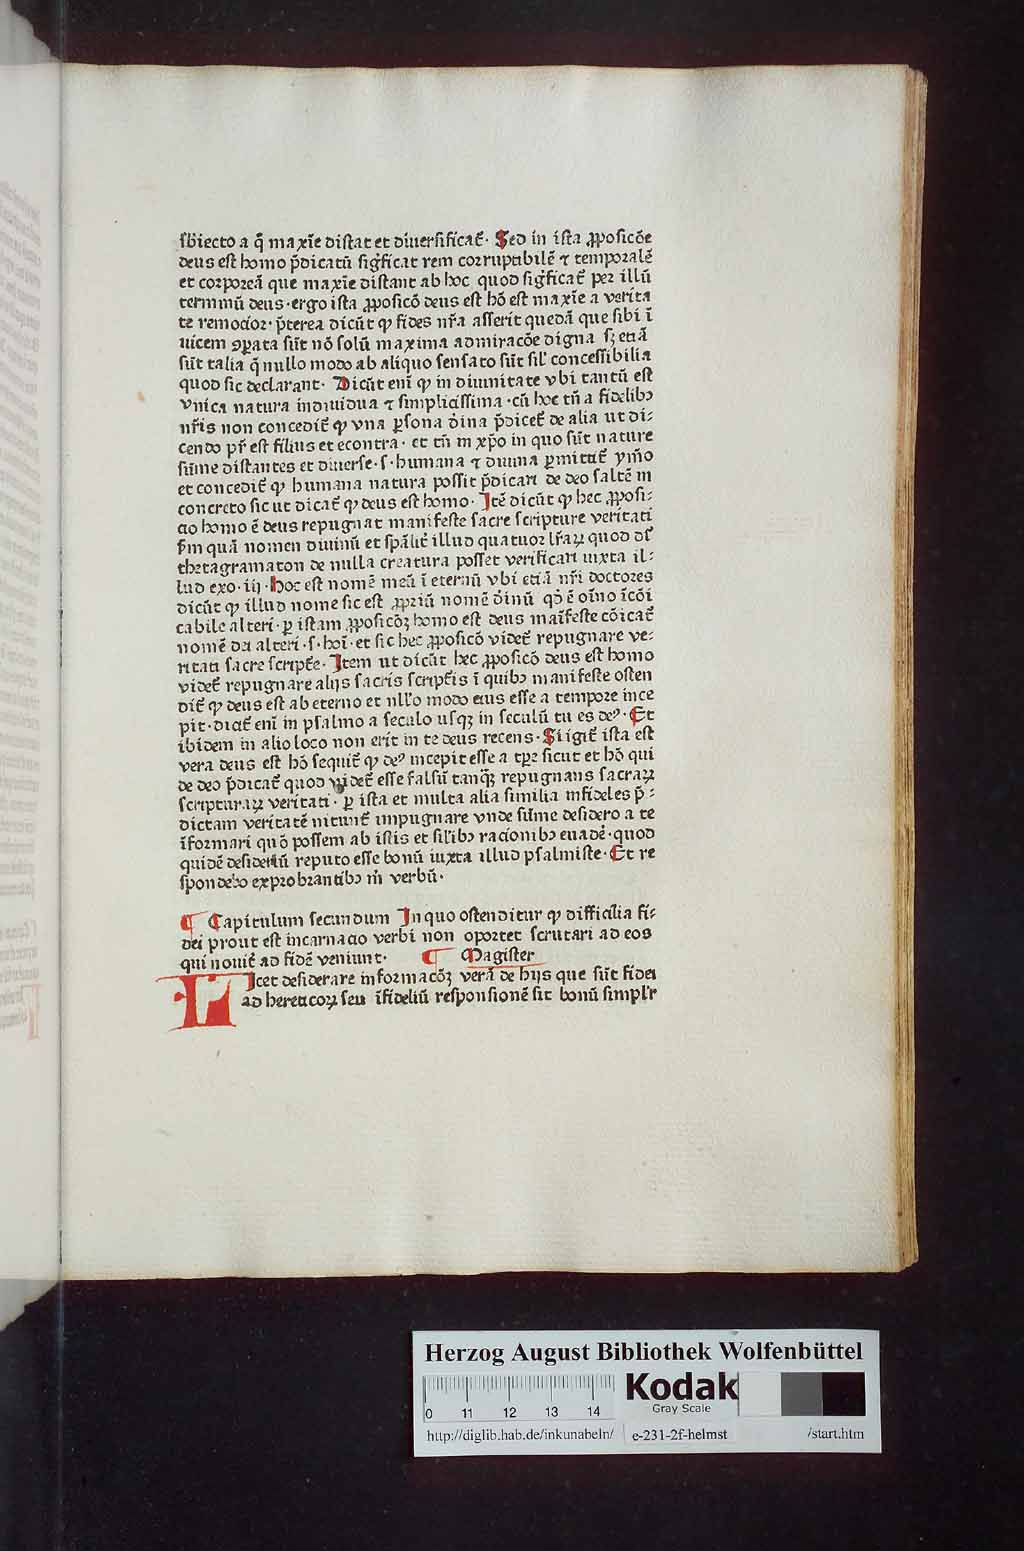 sbiecto a q̄ maxīe distat et diuersificat̄. Sed in ista ꝓposicōe
deus est homo p̄dicatū sigͥficat rem corruptibilē ⁊ temporalē
et corporeā que maxīe distant ab hoc quod sigͥficat̄ per illū
terminū deus. ergo ista ꝓposicō deus est hō est maxīe a verita
te remocior. p̄terea dicūt ꝙ fides nr̄a asserit quedā que sibi ī
uicem ꝯꝑata sūt nō solū maxima admiracōe digna sꝫ etiā
sūt talia q̄ nullo modo ab aliquo sensato sūt sil̕ concessibilia
quod sic declarant. Dicūt enī ꝙ in diuinitate vbi tantū est
vnica natura indiuidua ⁊ simplicissima. cū hoc tn̄ a fidelibꝰ
nr̄is non concedit̄ ꝙ vna ꝑsona diͥna p̄dicet̄ de alia ut di-
cendo pr̄ est filius et econtra. et tn̄ in xp̄o in quo sūt nature
sūme distantes et diuerse. s. humana ⁊ diuina ꝑmittit̄ ymͦo
et concedit̄ ꝙ humana natura possit p̄dicari de deo saltē in
concreto sic ut dicat̄ ꝙ deus est homo. Itē dicūt ꝙ hec ꝓposi-
cio homo ē deus repugnat manifeste sacre scripture veritati
s̄m quā nomen diuinū et sp̄alit̄ illud quatuor lr̄aꝝ quod dr̄
thetagramaton de nulla creatura posset verificari iuxta il-
lud exo. iij. Hoc est nomē meū ī eternū vbi etiā nr̄i doctores
dicūt ꝙ illud nome sic est ꝓpriū nomē diͥnū qd̄ ē oīno īcōi
cabile alteri. ꝑ istam ꝓposicōꝫ homo est deus maīfeste cōicat̄
nomē dei alteri. s. hoī. et sic hec ꝓposicō videt̄ repugnare ve-
ritati sacre script̄e. Item ut dicūt hec ꝓposicō deus est homo
videt̄ repugnare alijs sacris script̄is ī quibꝰ manifeste osten
dit̄ ꝙ deus est ab eterno et nllͦo modo eius esse a tempore ince
pit. dicit̄ enī in psalmo a seculo usqꝫ in seculū tu es deꝰ. Et
ibidem in alio loco non erit in te deus recens. Si igit̄ ista est
vera deus est hō sequit̄ ꝙ deꝰ incepit esse a tꝑe sicut et hō qui
de deo p̄dicat̄ quod videt̄ esse falsū tanqꝫ repugnans sacraꝝ
scripturaꝝ veritati. ꝑ ista et multa alia similia infideles p̄-
dictam veritatē nitunt̄ impugnare vnde sūme desidero a te
īformari quō possem ab istis et sil̕ibꝰ racionibꝰ euadē. quod
quidē desideriū reputo esse bonū iuxta illud psalmiste. Et re
spondebo exprobrantibꝰ mͥ verbū.
¶ Capitulum secundum In quo ostenditur ꝙ difficilia fi-
dei prout est incarnacio verbi non oportet scrutari ad eos
qui nouit̄ ad fidē veniunt. ¶ Magister
LIcet desiderare informacōꝫ verā de hijs que sūt fidei
ad hereticoꝝ seu īfideliū responsionē sit bonū simpl̕r
Herzog August Bibliothek Wolfenbüttel
0 11 12 13 14
Kodak
Gray Scale
http://diglib.hab.de/inkunabeln/ e-231-2f-helmst /start.htm